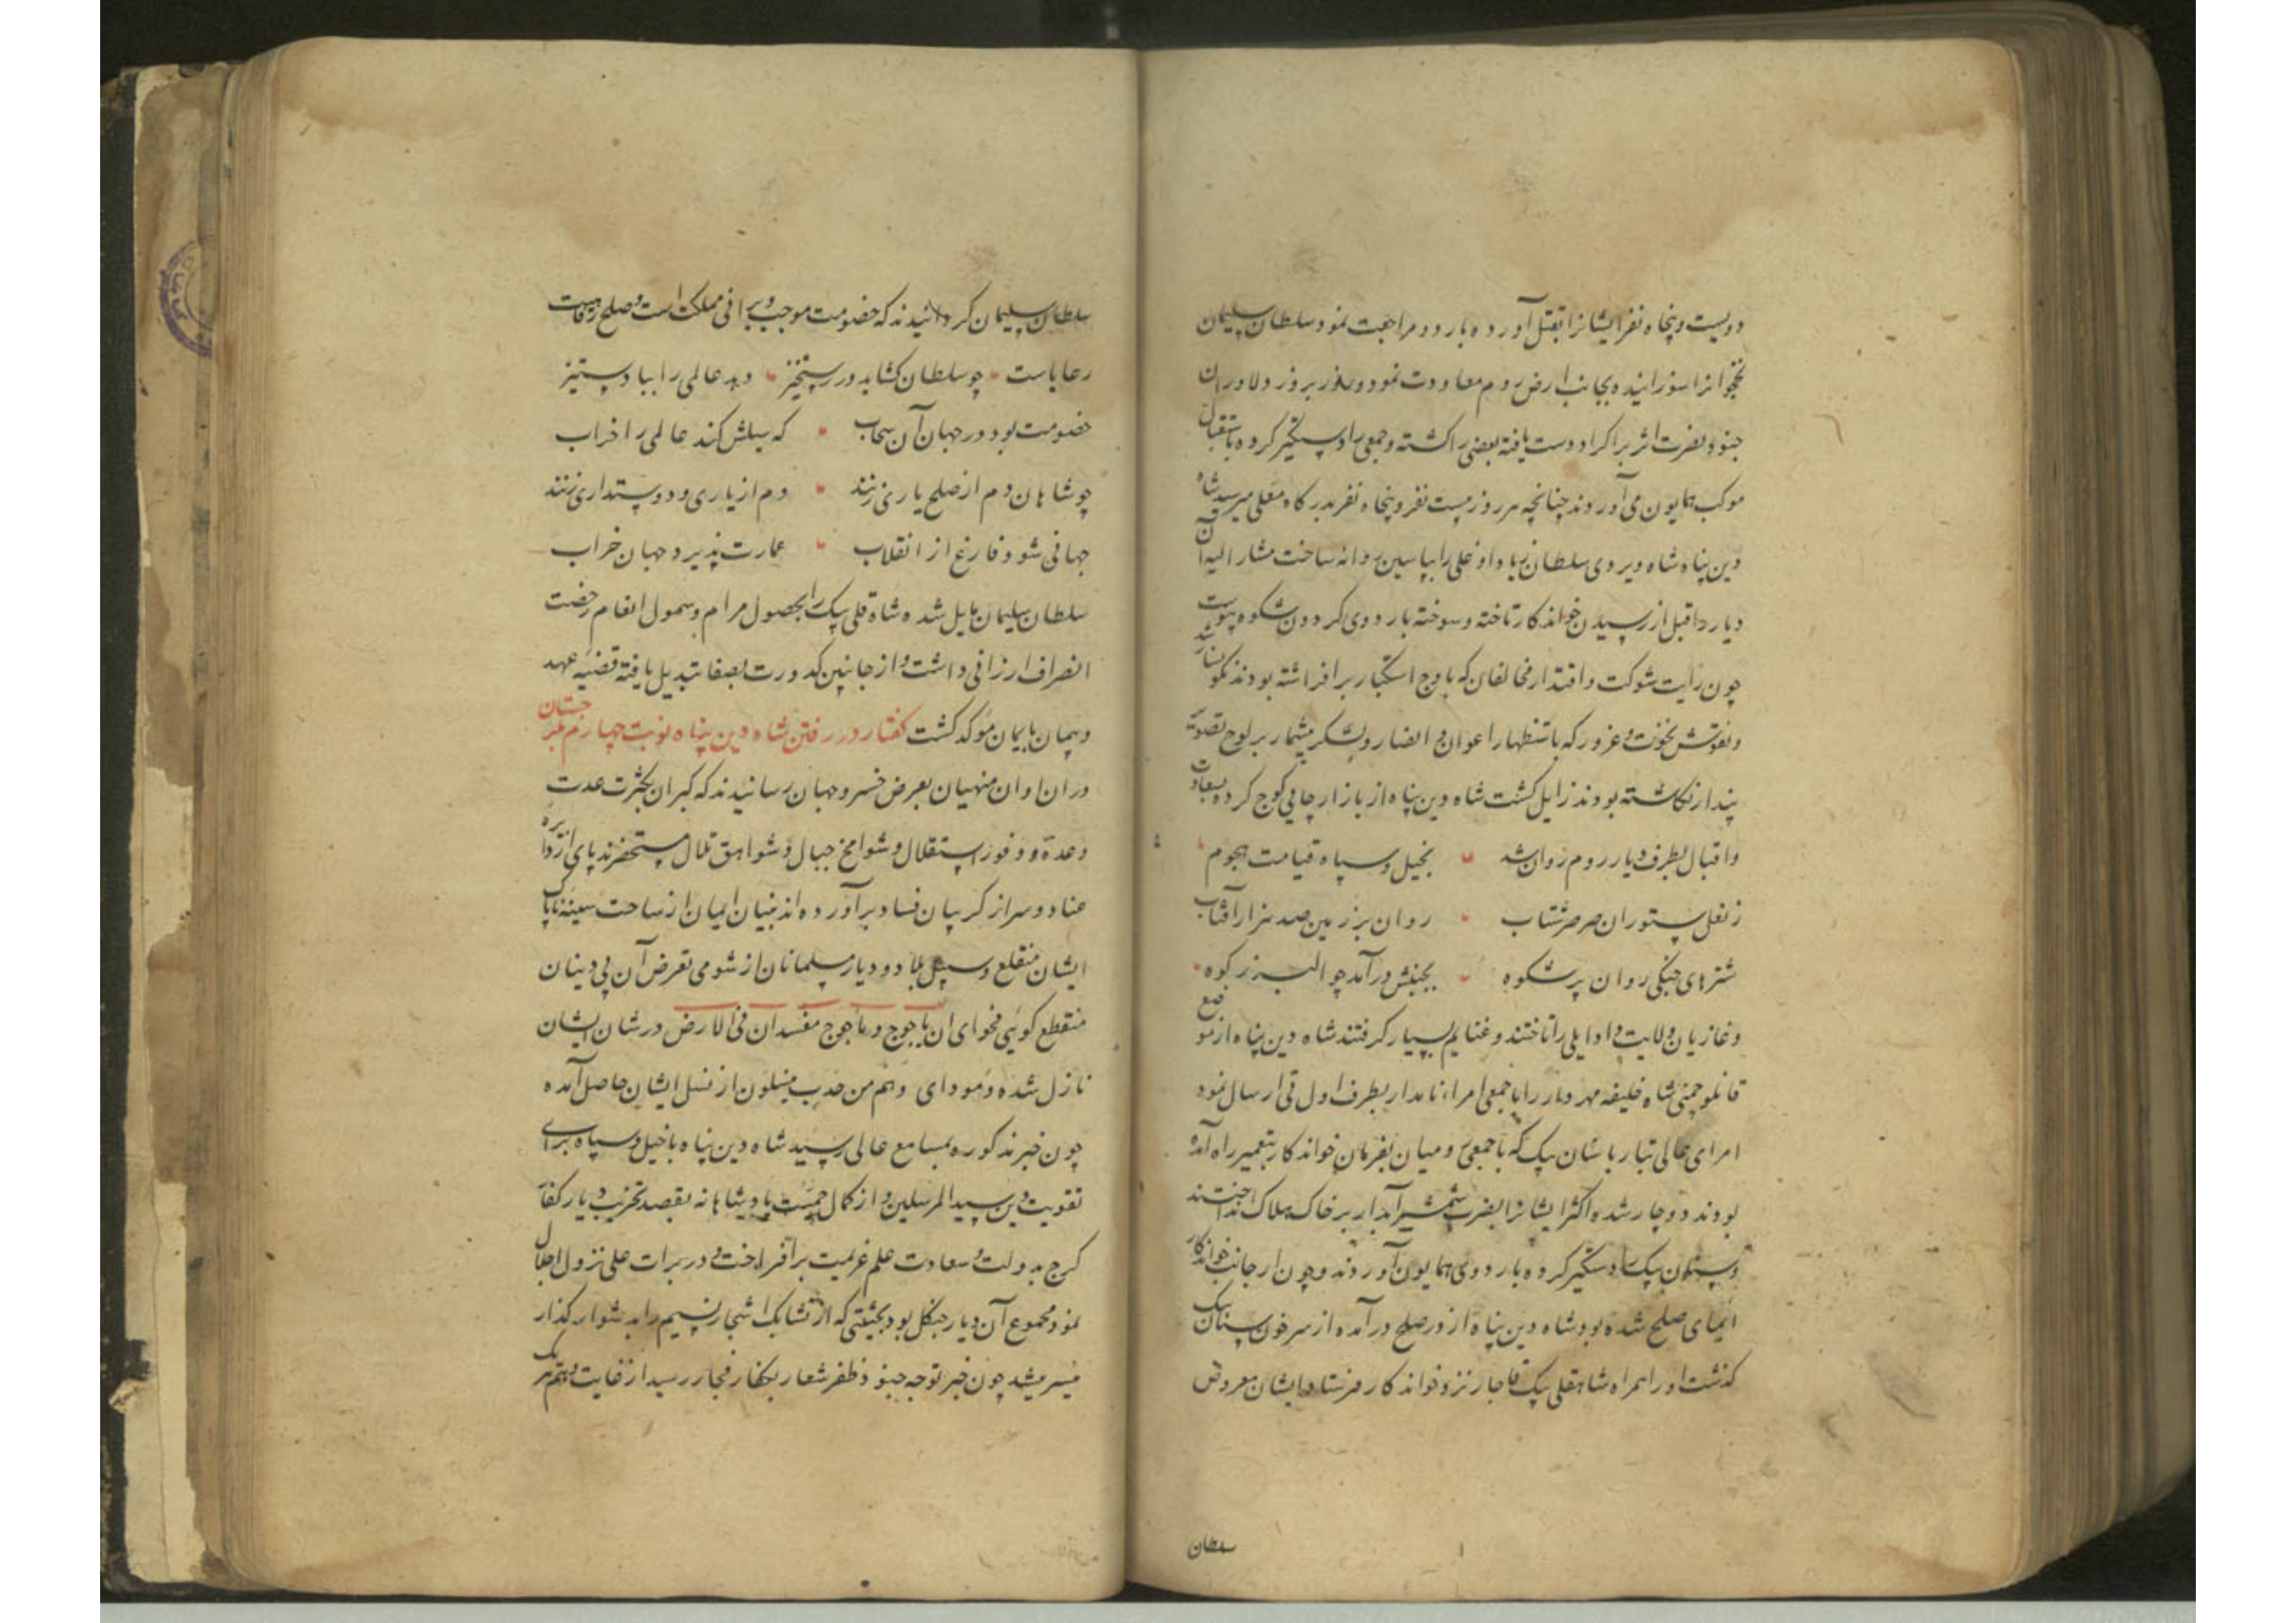 دویست و پنجاه نفر ایشانرا بقتل آورده باردو مراجعت نمود و سلطان سلیمان
نخجوانرا سوزانیده بجانب ارض روم معاودت نمود و روز بروز دلاوران
جنود نصرت اثر بر اکراد دست یافته بعضی را کشته و جمعی را دستگیر کرده باستقبال
موکب همایون می آوردند چنانچه هر روز بیست نفر و پنجاه نفر بدرگاه معلی میرسید شاه
دین پناه شاه ویردی سلطان زیاد اوغلی را بپاسین روانه ساخت مشار الیه آن
دیار را قبل از رسیدن خواندکار تاخته و سوخته باردوی گردون شکوه پیوست
چون رایت شوکت و اقتدار مخالفان که باوج استکبار برافراشته بودند نکونسار شد
و نقوش نخوت و غرور که باستظهار اعوان و انصار و لشکر بیشمار بر لوح تصویر
پندار نکاشته بودند زایل کشت شاه دین پناه از بازار چایی کوچ کرده بسعادت
و اقبال بطرف دیار روم روان شد بخیل و سپاه قیامت هجوم
ز نعل ستوران صرصر شتاب روان بر زمین صد هزار آفتاب
شترهای جنکی روان پر شکوه بجنبش درآمد چو البرز کوه
و غازیان ولایت دادایلی را تاختند و غنایم بسیار کرفتند شاه دین پناه از موضع
قانلو چمنی شاه خلیفه مهردار را با جمعی امراء نامدار بطرف اول قی ارسال نمود
امرای عالی تبار با سنان بیک که با جمعی رومیان بفرمان خواندکار بتعمیر راه آمده
بودند دوچار شده اکثر ایشانرا بضرب شمشیر آبدار بر خاک هلاک انداختند
و سنان بیک را دستگیر کرده باردوی همایون آوردند و چون از جانب خواندکار
ایمای صلح شده بود شاه دین پناه از در صلح درآمده از سر خون سنان بیک
کذشت او را همراه شاهقلی بیک قاجار نزد خواندکار فرستاد ایشان معروض
سلطان
سلطان سلیمان کردانیدند که خصومت موجب ویرانی مملکت است و صلح رفاهیت
رعایاست چو سلطان کشاید در رستخیز دهد عالمی را بباد ستیز
خصومت بود در جهان آن سحاب که سیلش کند عالمی را خراب
چو شاهان دم از صلح یاری زنند دم از یاری و دوستداری زنند
جهانی شود فارغ از انقلاب عمارت پذیرد جهان خراب
سلطان سلیمان مایل شده شاه قلی بیک را بحصول مرام و شمول انعام رخصت
انصراف ارزانی داشت و از جانبین کدورت بصفا تبدیل یافته قضیه عهد
و پیمان بایمان موکد کشت کفتار در رفتن شاه دین پناه نوبت چهارم بکرجستان
در ان اوان منهیان بعرض خسرو جهان رسانیدند که کبران بکثرت عدت
وعده و وفور استقلال و شوامخ جبال و شواهق تلال مستحضرند پای از دایره
عناد و سر از کریبان فساد برآورده اند بنیان ایمان از ساحت سینه ناپاک
ایشان منقلع و سبیل بلاد و دیار مسلمانان از شومی تعرض آن بی دینان
منقطع کوئی فحوای ان یاجوج و ماجوج مفسدان فی الارض در شان ایشان
نازل شده و مودای و هم من حدب ینسلون از نسل ایشان حاصل آمده
چون خبر مذکوره بمسامع عالی رسید شاه دین پناه با خیل و سپاه برای
تقویت دین سید المرسلین و از کمال حمیت پادشاهانه بقصد تخریب دیار کفار
کرج بدولت و سعادت علم عزیمت برافراخت و در برات علی نزول اجلال
نمود مجموع آن دیار جنکل بود بحیثیتی که از تشابک اشجار نسیم را بدشوار کذار
میسر میشد چون خبر توجه جنود ظفر شعار بکفار فجار رسید از غایت وهم هر یک